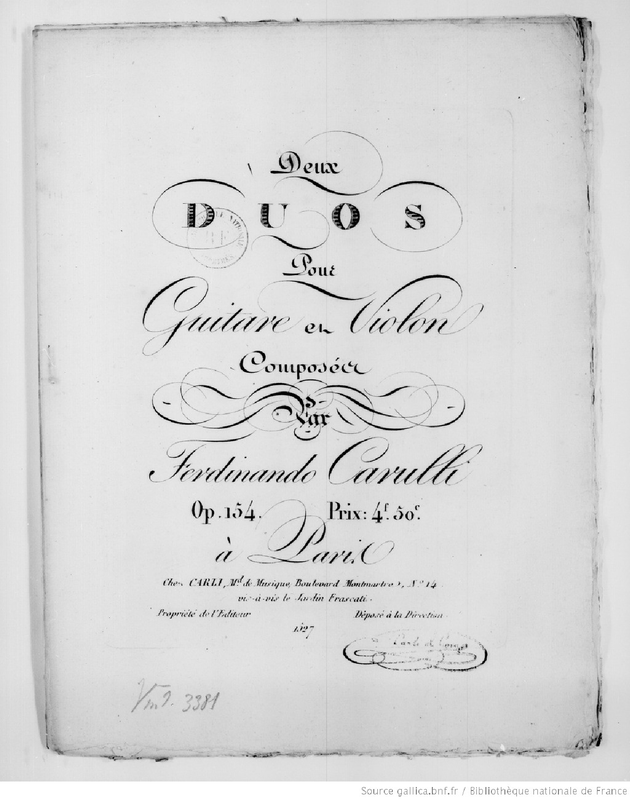 Deux
DUOS
Pour
Guitare et Violon
Composés
Par
Ferdinando Carulli
Op. 154. Prix: 4f. 50c.
à Paris
Chez CARLI, Md. de Musique, Boulevard Montmartre, No. 14
vis-à-vis le Jardin Frascati.
Propriété de l'Editeur Déposé à la Direction
1527
Vm9. 3381
Source gallica.bnf.fr / Bibliothèque nationale de France